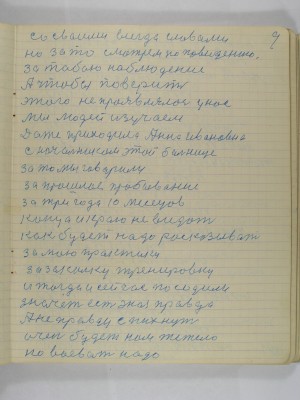 9
со своими всегда словами
но за то смотрем по поведению.
за табою наблюдение
А чтобы поверити
этого не проявлялос у нас
мы людей изучаем
Даже приходила Анна Ивановна
с началником этой болнице
за то мы говорили
за прошлое пробывание
за три года 10 месецов
когда и краю не видат
как будет надо росказоват
за мою практику
за зысылку тренировку
и тогда и сейчас посодили
значет ест эная правда
А не правду спихнут
очен будет нам тежело
по воеват надо